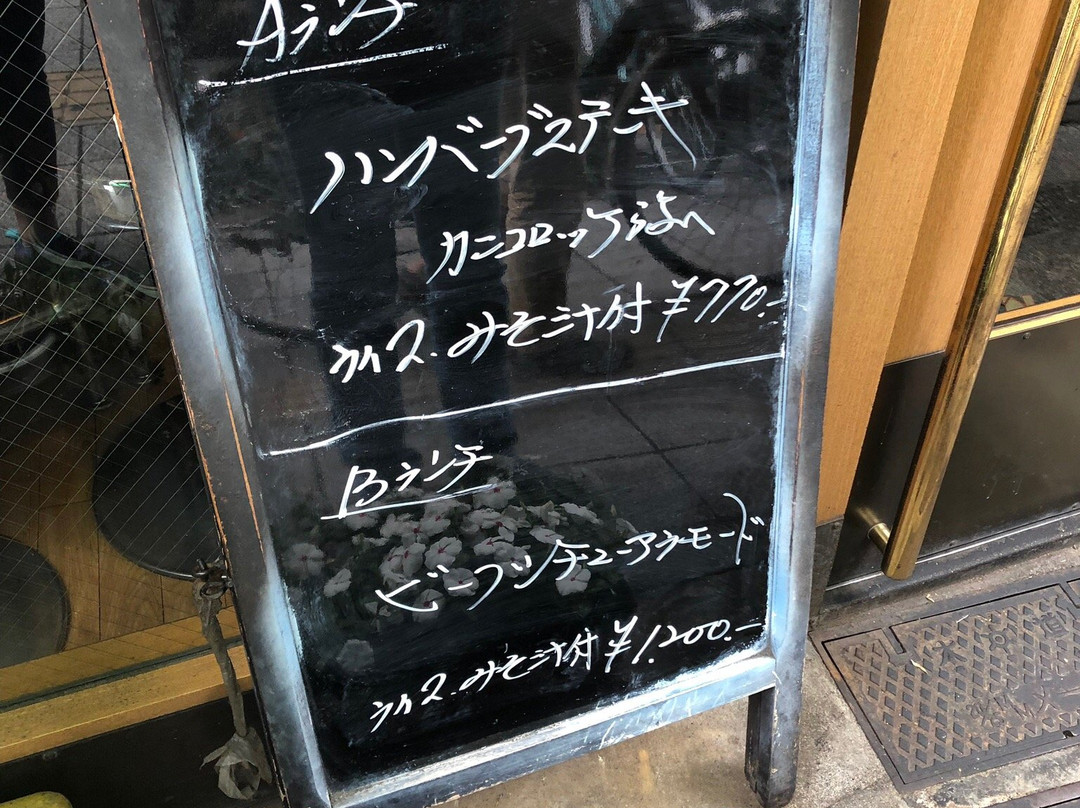 Aランチ
ハンバーグステーキ
カニコロッケ添へ
ライス.みそ汁付 ¥770.-
Bランチ
ビーフシチューアラモード
ライス.みそ汁付 ¥1.200.-